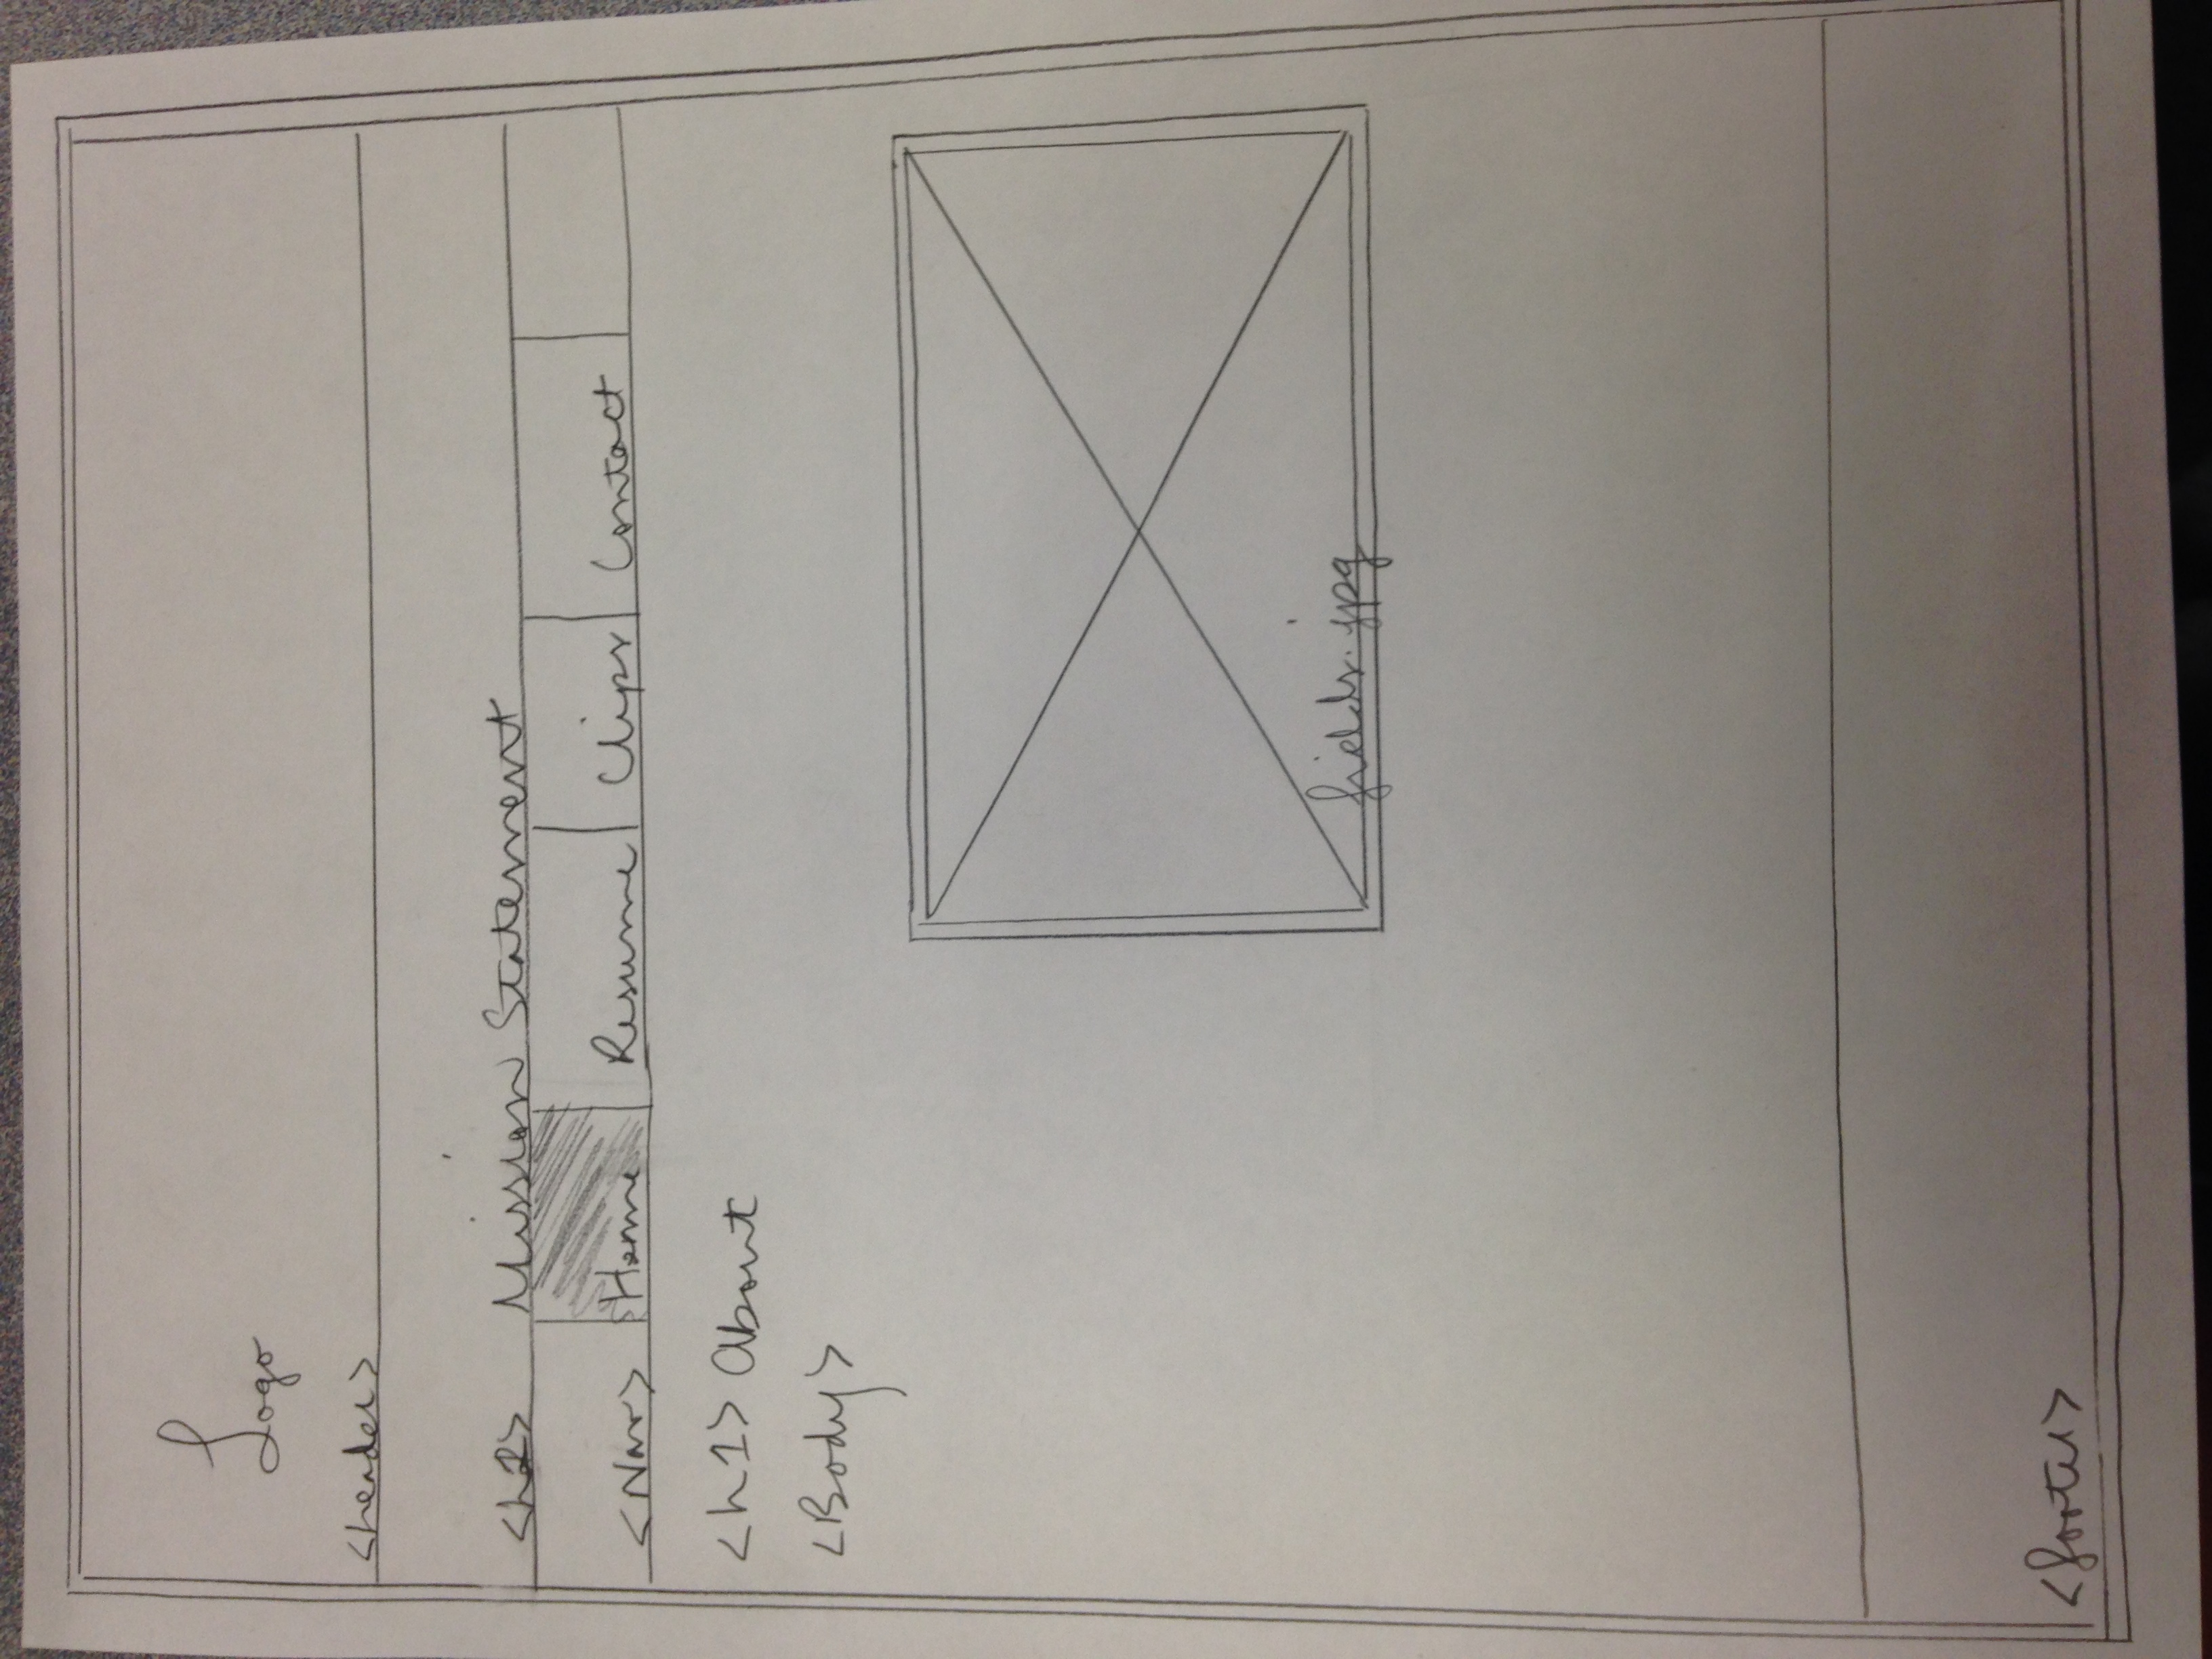 Logo
<header>
<h2> Mission Statement
<Nav> Home Resume Clips Contact
<h1> About
<Body>
fields.jpg
<footer>